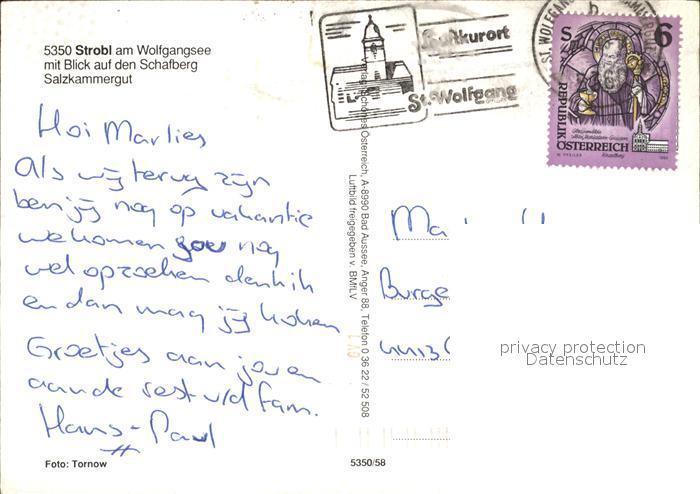 5350 Strobl am Wolfgangsee
mit Blick auf den Schafberg
Salzkammergut
Hoi Marlies
Als wij terug zijn
ben jij nog op vakantie
we komen jou nog
wel opzoeken denk ik
en dan mag jij koken
Groetjes aan jou en
aan de rest v/d fam.
Hans-Paul
Foto: Tornow
5350/58
Verlag Schönes Österreich, A-8990 Bad Aussee, Anger 88, Telefon 0 36 22 / 52 508
Luftbild freigegeben v. BMfLV
Luftkurort
St. Wolfgang
ST. WOLFGANG
S 6
REPUBLIK
ÖSTERREICH
Ma
Burge
privacy protection
Datenschutz